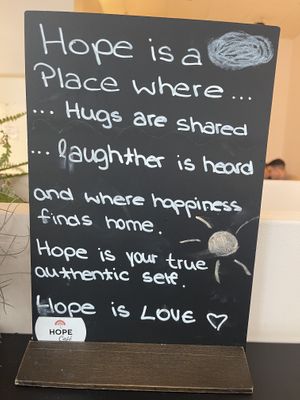 Hope is a
Place where...
... Hugs are shared
... laughther is heard
and where happiness
finds home.
Hope is your true
authentic self.
Hope is LOVE ♡
HOPE
Café